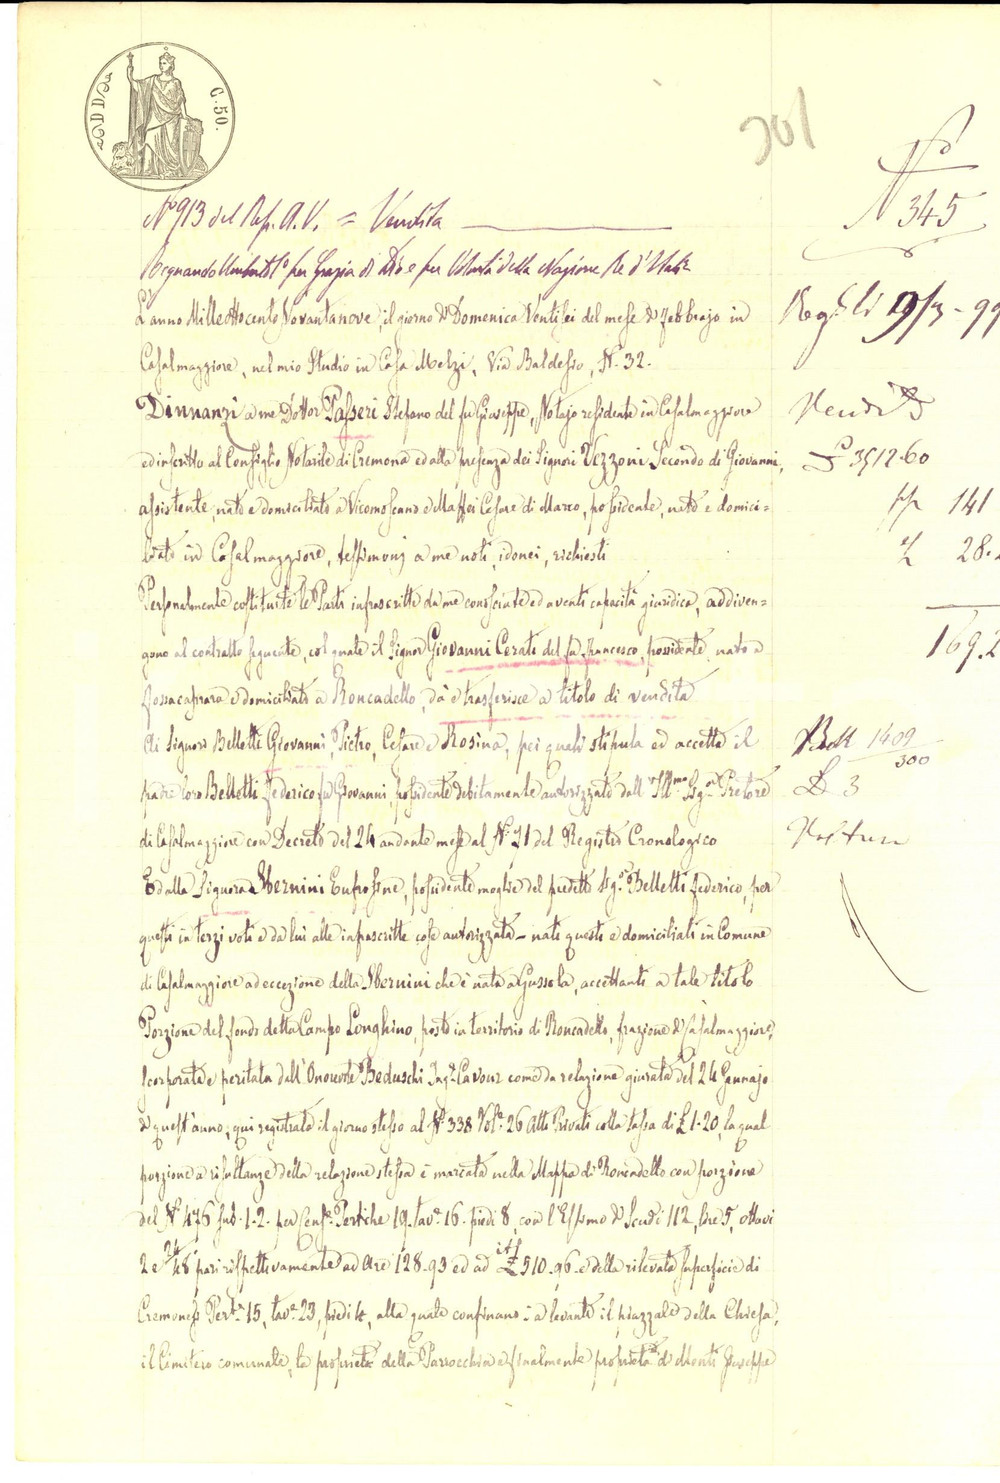 C. 50.
301
N°
345
N° 913 del Rep. A. V. = Vendita
Regnando Umberto I° per Grazia di Dio e per Volontà della Nazione Re d'Italia
L'anno Milleottocento Novantanove, il giorno di Domenica Ventisei del mese di Febbrajo in
Casalmaggiore, nel mio Studio in Casa Melzi, Via Baldesio, N. 32.
Dinnanzi a me Dottor Passeri Stefano del fu Giuseppe, Notajo residente in Casalmaggiore
ed inscritto al Consiglio Notarile di Cremona ed alla presenza dei Signori Vezzoni Secondo di Giovanni,
assistente, nato e domiciliato a Vicomoscano e Maffei Cesare di Marco, possidente, nato e domici=
liato in Casalmaggiore, testimonj a me noti, idonei, richiesti
Personalmente costituite le Parti infrascritte da me conosciute ed aventi capacità giuridica, addiven=
gono al contratto seguente, col quale il Signor Giovanni Cerati del fu Francesco, possidente, nato a
Fossacaprara e domiciliato a Roncadello, dà e trasferisce a titolo di vendita
Ai Signori Belletti Giovanni, Pietro, Cesare e Rosina, pei quali stipula ed accetta il
padre loro Belletti Federico fu Giovanni, possidente debitamente autorizzato dall'Ill.mo Sig.r Pretore
di Casalmaggiore con Decreto del 24 andante mese al N. 71 del Registro Cronologico
E dalla Signora Sbernini Eufrosine, possidente moglie del predetto Sig.r Belletti Federico, per
questi in terzi voti e da lui alle infrascritte cose autorizzata - nati questi e domiciliati in Comune
di Casalmaggiore ad eccezione della Sbernini che è nata a Gussola, accettanti a tale titolo
Porzione del fondo detto Campo Longhino, posto in territorio di Roncadello, frazione di Casalmaggiore,
scorporata e peritata dall'Onorevole Beduschi Ing.r Cavour come da relazione giurata del 24 Gennajo
di quest'anno, qui registrata il giorno stesso al N. 338 Vol. 26 Atti Privati colla tassa di £ 1.20, la qual
porzione a risultanze della relazione stessa è marcata nella Mappa di Roncadello con porzione
del N. 476 sub. 1.2. per Cens.e Pertiche 19. tav.e 16. piedi 8, con l'Estimo di Scudi 112, lire 5, ottavi
2 e 24/48 pari rispettivamente ad Are 128.93 ed ad it. £ 510.96 e della rilevata superficie di
Cremonesi Pert.e 15, tav.e 23, piedi 4, alla quale confinano: a levante il piazzale della Chiesa,
il Cimitero comunale, la proprietà della Parrocchia e finalmente proprietà di Monti Giuseppe
Reg. li 9/3 - 99
Vendita
£ 3512.60
141
28.
169.2
1409
300
£ 3